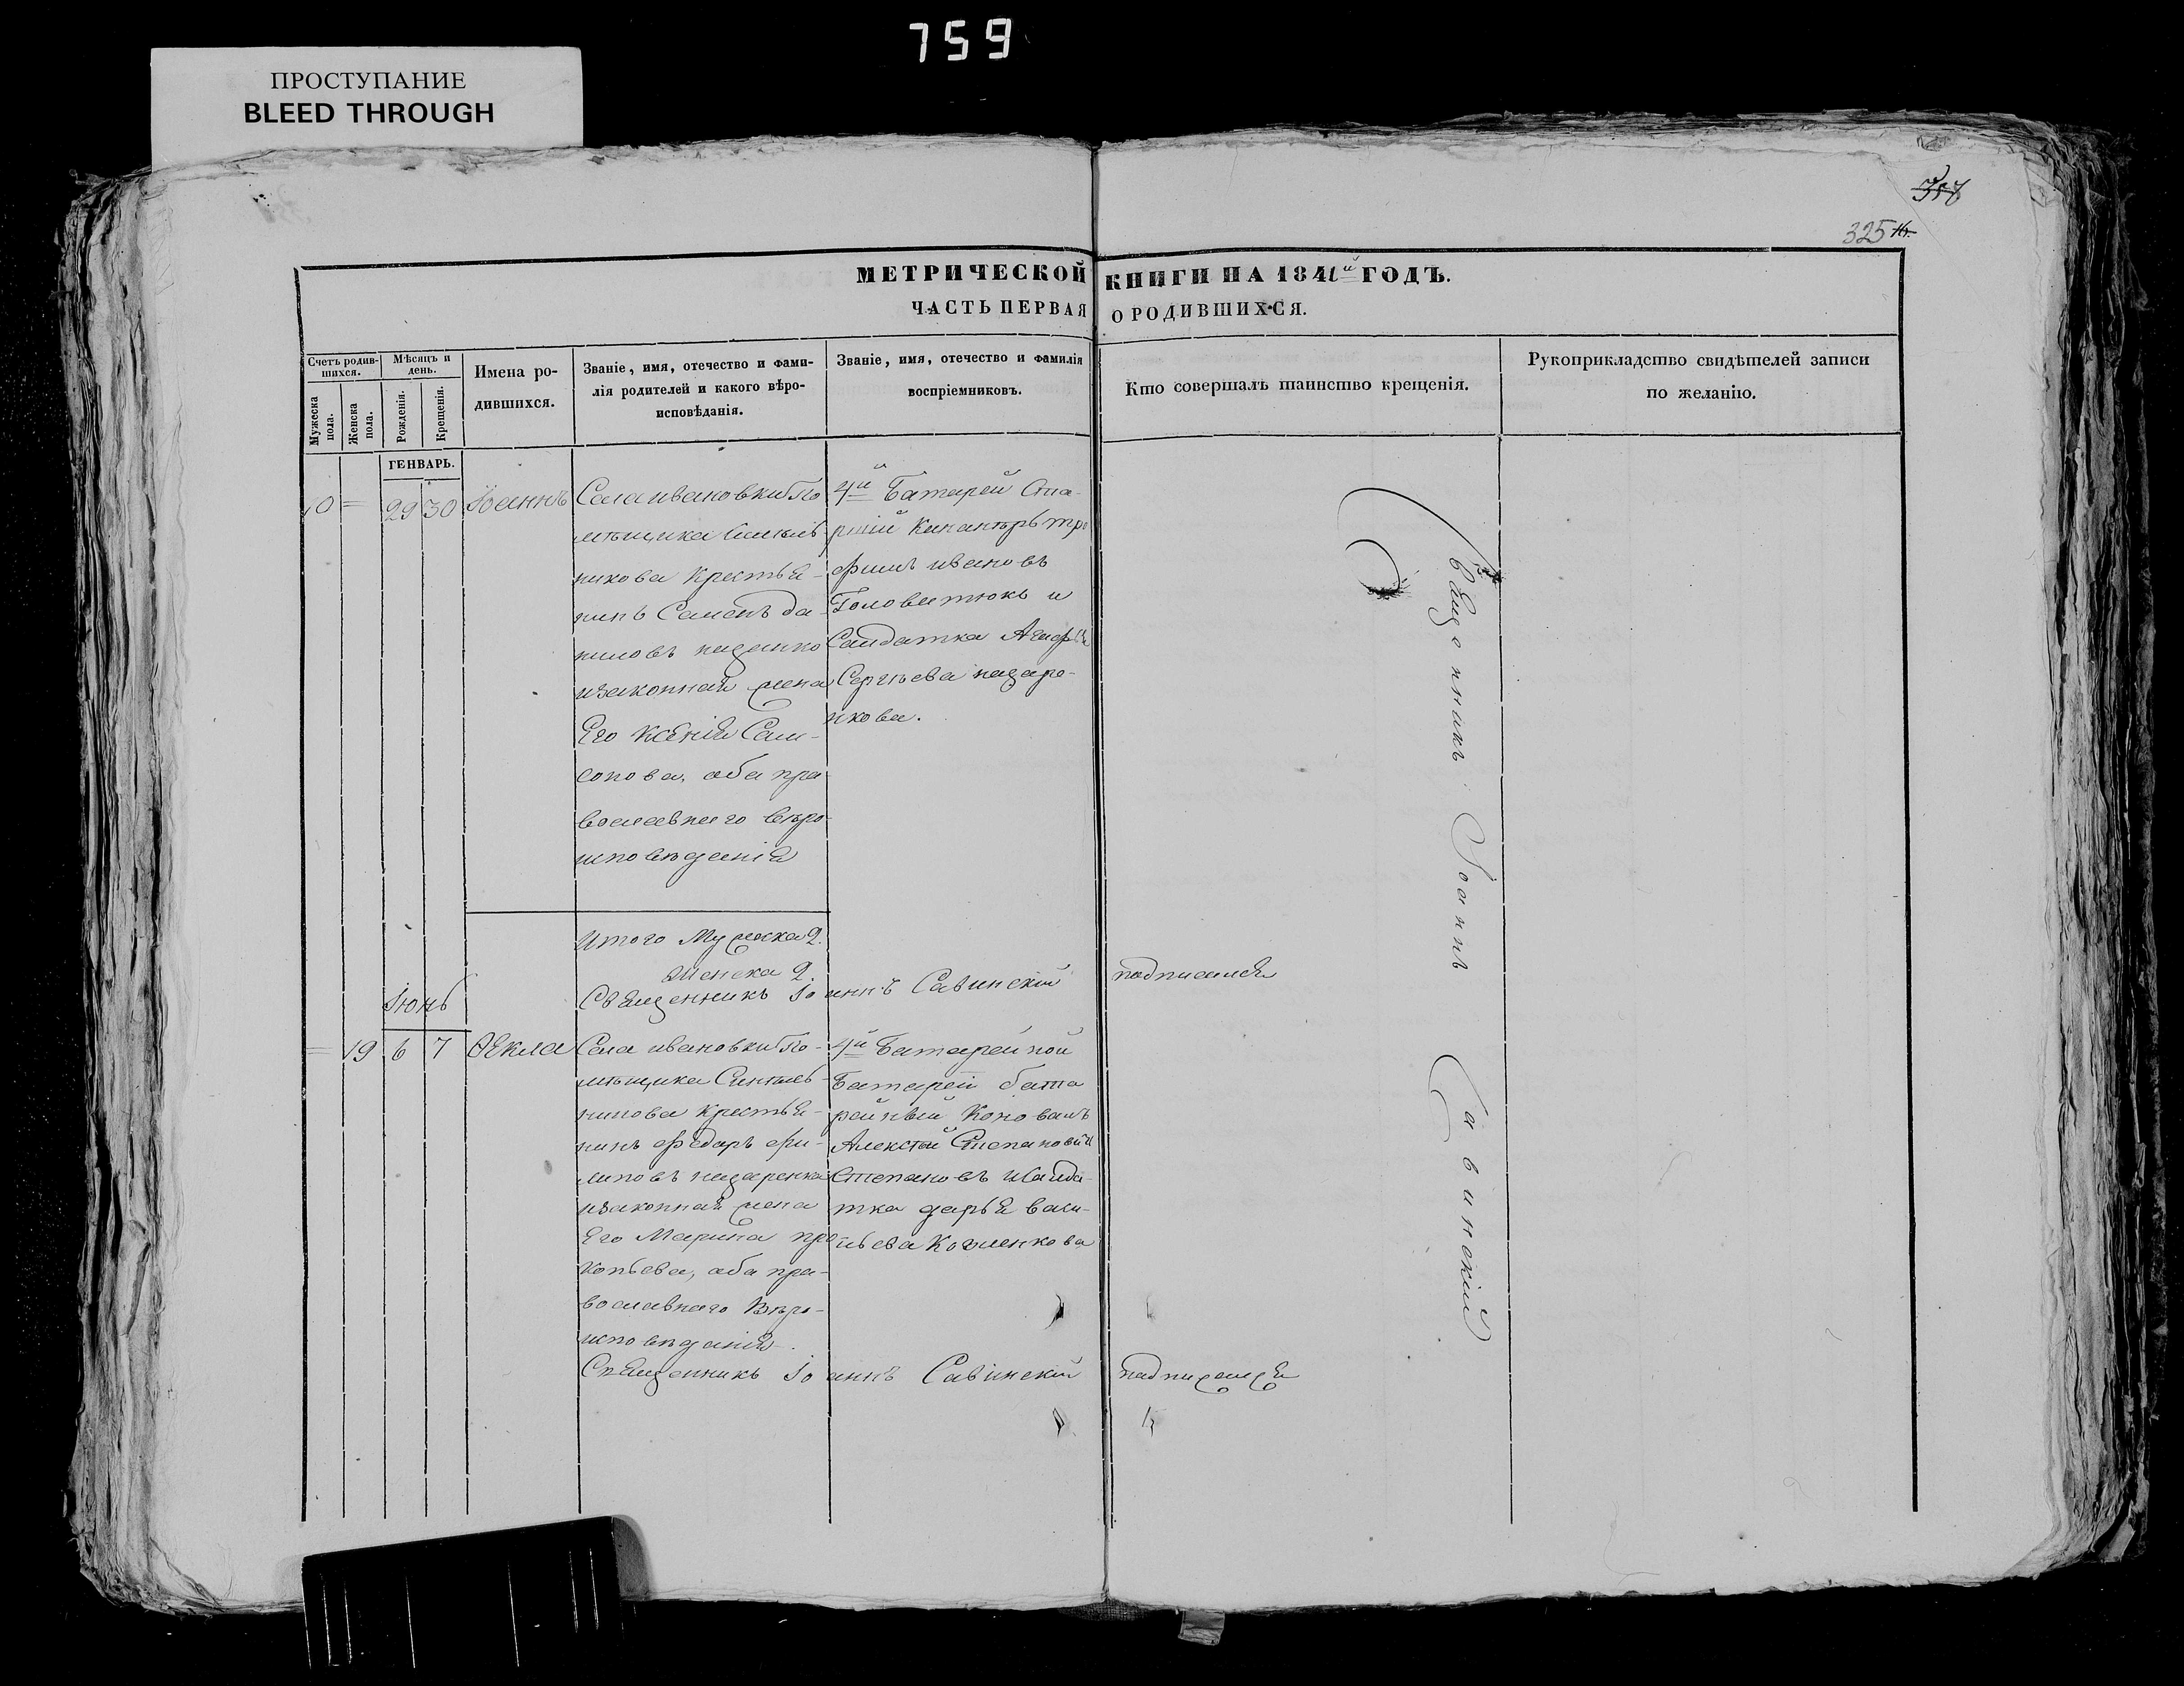 759
ПРОСТУПАНИЕ
BLEED THROUGH
325
МЕТРИЧЕСКОЙ КНИГИ НА 1841й ГОДЪ.
ЧАСТЬ ПЕРВАЯ О РОДИВШИХСЯ.
Счетъ родив-
шихся.
Мужеска
пола.
Женска
пола.
Мѣсяцъ и
день.
Рожденія.
Крещенія.
Имена ро-
дившихся.
Званіе, имя, отечество и фами-
лія родителей и какого вѣро-
исповѣданія.
Званіе, имя, отечество и фамилія
воспріемниковъ.
Кто совершалъ таинство крещенія.
Рукоприкладство свидѣтелей записи
по желанію.
ГЕНВАРЬ.
10 = 29 30 Іоаннъ
Села ивановки По
мѣщика
никова Крестья-
нинъ Семенъ да-
ниловъ
изаконная жена
Его Ксенія Сам-
сонова, оба пра
вославнаго веро-
исповѣданія
4й Батареи Ста-
ршій Кананѣръ тро
фимъ ивановъ
Головатюкъ и
Салдатка Агафья
Сергѣева назаре-
нкова.
Итого Мужеска 2.
Женска 2.
Священникъ Іоаннъ Савинскій подписался
Іюнь
= 19 6 7 Ѳекла
Села ивановки По-
мѣщика
никова Крестья-
нинъ Федоръ фи-
липовъ назаренко
изаконная жена
Его Марина про
копьева, оба пра-
вославнаго Веро-
исповѣданія.
4й Батарейной
Батареи бата
рейный Коновалъ
Алексѣй Степановъ
Степановъ иСалда-
тка дарья васи-
льева
Священникъ Іоаннъ Савинскій подписался
Священникъ Іоаннъ Савинскій